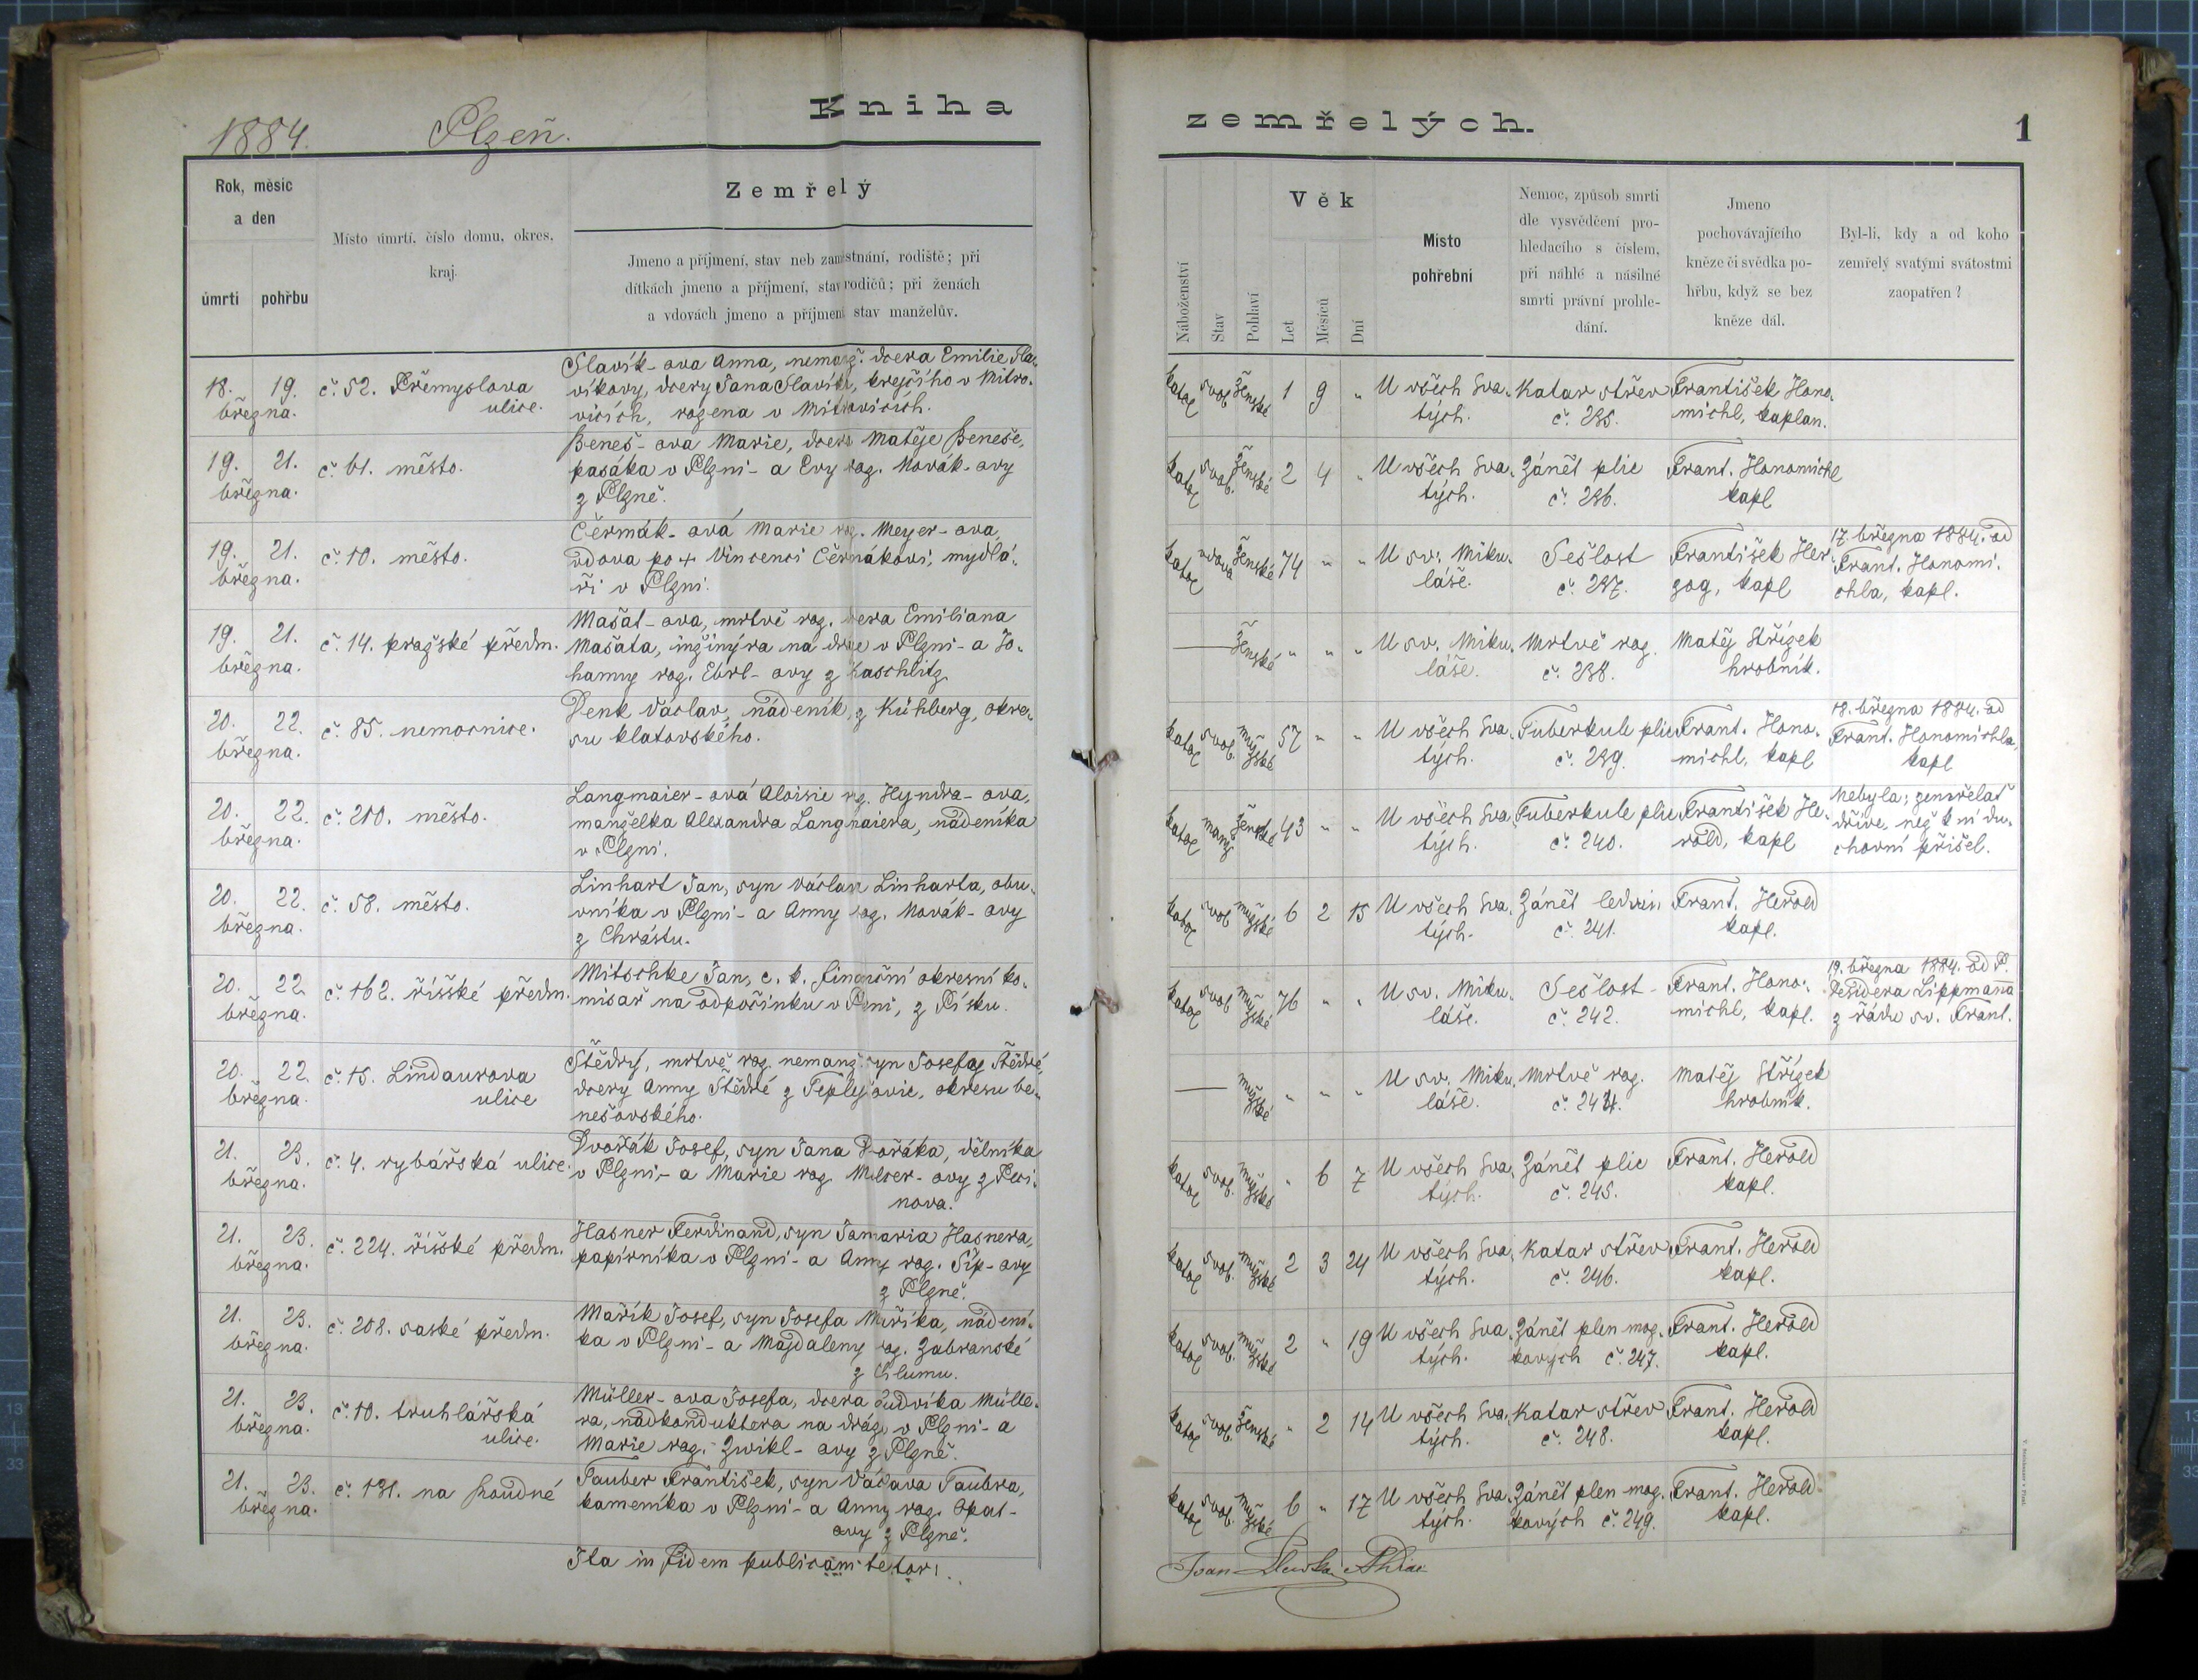 Kniha
1884. Plzeň.
Rok, měsíc
a den
úmrtí pohřbu
Místo úmrtí, číslo domu, okres,
kraj.
Zemřelý
Jmeno a příjmení, stav neb zaměstnání, rodiště; při
dítkách jmeno a příjmení, stav rodičů; při ženách
a vdovách jmeno a příjmení stav manželův.
18. 19.
března.
č. 52. Přemyslova
ulice.
Slavík-ova Anna, nemanž. dcera Emilie Sla-
víkovy, dcery Jana Slavíka, krejčího v Mitro-
vicích, rozena v Mitrovicích.
19. 21.
března.
č. 61. město.
Beneš-ova Marie, dcera Matěje Beneše,
pasáka v Plzni - a Evy roz. Novák-ovy
z Plzně.
19. 21.
března.
č. 10. město.
Čermák-ová Marie roz. Meyer-ova,
vdova po + Vincenci Čermákovi, mydlá-
ři v Plzni.
19. 21.
března.
č. 14. pražské předm.
Mašat-ova, mrtvě roz. dcera Emiliana
Mašata, inžinýra na dráze v Plzni - a Jo-
hanny roz. Ebrl-ovy z
20. 22.
března.
č. 85. nemocnice.
Denk Václav, nádeník, z Kühberg, okre-
su klatovského.
20. 22.
března.
č. 210. město.
Langmaier-ová Aloisie roz. Hyndra-ova,
manželka Alexandra Langmaiera, nádeníka
v Plzni.
20. 22.
března.
č. 58. město.
Linhart Jan, syn Václava Linharta, obu-
vníka v Plzni - a Anny roz. Novák-ovy
z Chrástu.
20. 22.
března.
č. 162. říšské předm.
Mitschke Jan, c. k. finanční okresní ko-
misař na odpočinku v Plzni, z Písku.
20. 22.
března.
č. 15. Lindaurova
ulice
Štědrý, mrtvě roz. nemanž. syn Josefy Štědré,
dcery Anny Štědré z Teplýšovic, okresu be-
nešovského.
21. 23.
března.
č. 4. rybářská ulice.
Dvořák Josef, syn Jana Dvořáka, dělníka
v Plzni - a Marie roz. ovy z Peci-
nova.
21. 23.
března.
č. 224. říšské předm.
Hasner Ferdinand, syn Hasnera,
papírníka v Plzni - a Anny roz. Šíp-ovy
z Plzně.
21. 23.
března.
č. 208. saské předm.
Mařík Josef, syn Josefa Maříka, nádení-
ka v Plzni - a Majdaleny roz. Zabranské
z Chlumu.
21. 23.
března.
č. 10. truhlářská
ulice.
Müller-ova Josefa, dcera Ludvíka Mülle-
ra, nadkonduktera na dráze v Plzni - a
Marie roz. Zwikl-ovy z Plzně.
21. 23.
března.
č. 131. na Roudné
Tauber František, syn Václava Taubra,
kameníka v Plzni - a Anny roz. Opat-
ovy z Plzně.
Ita in fidem publicam testor:
zemřelých.
1
Náboženství
Stav
Pohlaví
Věk
Let
Měsíců
Dní
Místo
pohřební
Nemoc, způsob smrti
dle vysvědčení pro-
hledacího s číslem,
při náhlé a násilné
smrti právní prohle-
dání.
Jmeno
pochovávajícího
kněze či svědka po-
hřbu, když se bez
kněze dál.
Byl-li, kdy a od koho
zemřelý svatými svátostmi
zaopatřen?
katol svob ženské 1 9 "
U všech Sva-
tých.
Katar střev
č. 235.
František Hono-
michl, kaplan.
katol svob. ženské 2 4 "
U všech Sva-
tých.
Zánět plic
č. 236.
Frant. Honomichl
kapl
katol vdova ženské 74 " "
U sv. Miku-
láše.
Sešlost
č. 237.
František Her-
zog, kapl
17. března 1884. od
Frant. Honomi-
chla, kapl.
— ženské " " "
U sv. Miku-
láše.
Mrtvě roz.
č. 238.
Matěj Střízek
hrobník.
katol svob. mužské 57 " "
U všech Sva-
tých.
Tuberkule plic
č. 239.
Frant. Hono-
michl, kapl
18. března 1884. od
Frant. Honomichla,
kapl
katol manž ženské 43 " "
U všech Sva-
tých.
Tuberkule plic
č. 240.
František He-
rold, kapl
Nebyla; zemřelať
dříve, než k ní du-
chovní přišel.
katol svob mužské 6 2 15
U všech Sva-
tých.
Zánět ledvin
č. 241.
Frant. Herold
kapl.
katol svob mužské 76 " "
U sv. Miku-
láše.
Sešlost
č. 242.
Frant. Hono-
michl, kapl.
19. března 1884. od P.
Desidera Lippmanna
z řádu sv. Frant.
— mužské " " "
U sv. Miku-
láše.
Mrtvě roz.
č. 244.
Matěj Střízek
hrobník.
katol svob. mužské " 6 7
U všech Sva-
tých.
Zánět plic
č. 245.
Frant. Herold
kapl.
katol svob. mužské 2 3 24
U všech Sva-
tých.
Katar střev
č. 246.
Frant. Herold
kapl.
katol svob. mužské 2 " 19
U všech Sva-
tých.
Zánět plen moz-
kových č. 247.
Frant. Herold
kapl.
katol svob. ženské " 2 14
U všech Sva-
tých.
Katar střev
č. 248.
Frant. Herold
kapl.
katol svob. mužské 6 " 17
U všech Sva-
tých.
Zánět plen moz-
kových č. 249.
Frant. Herold
kapl.